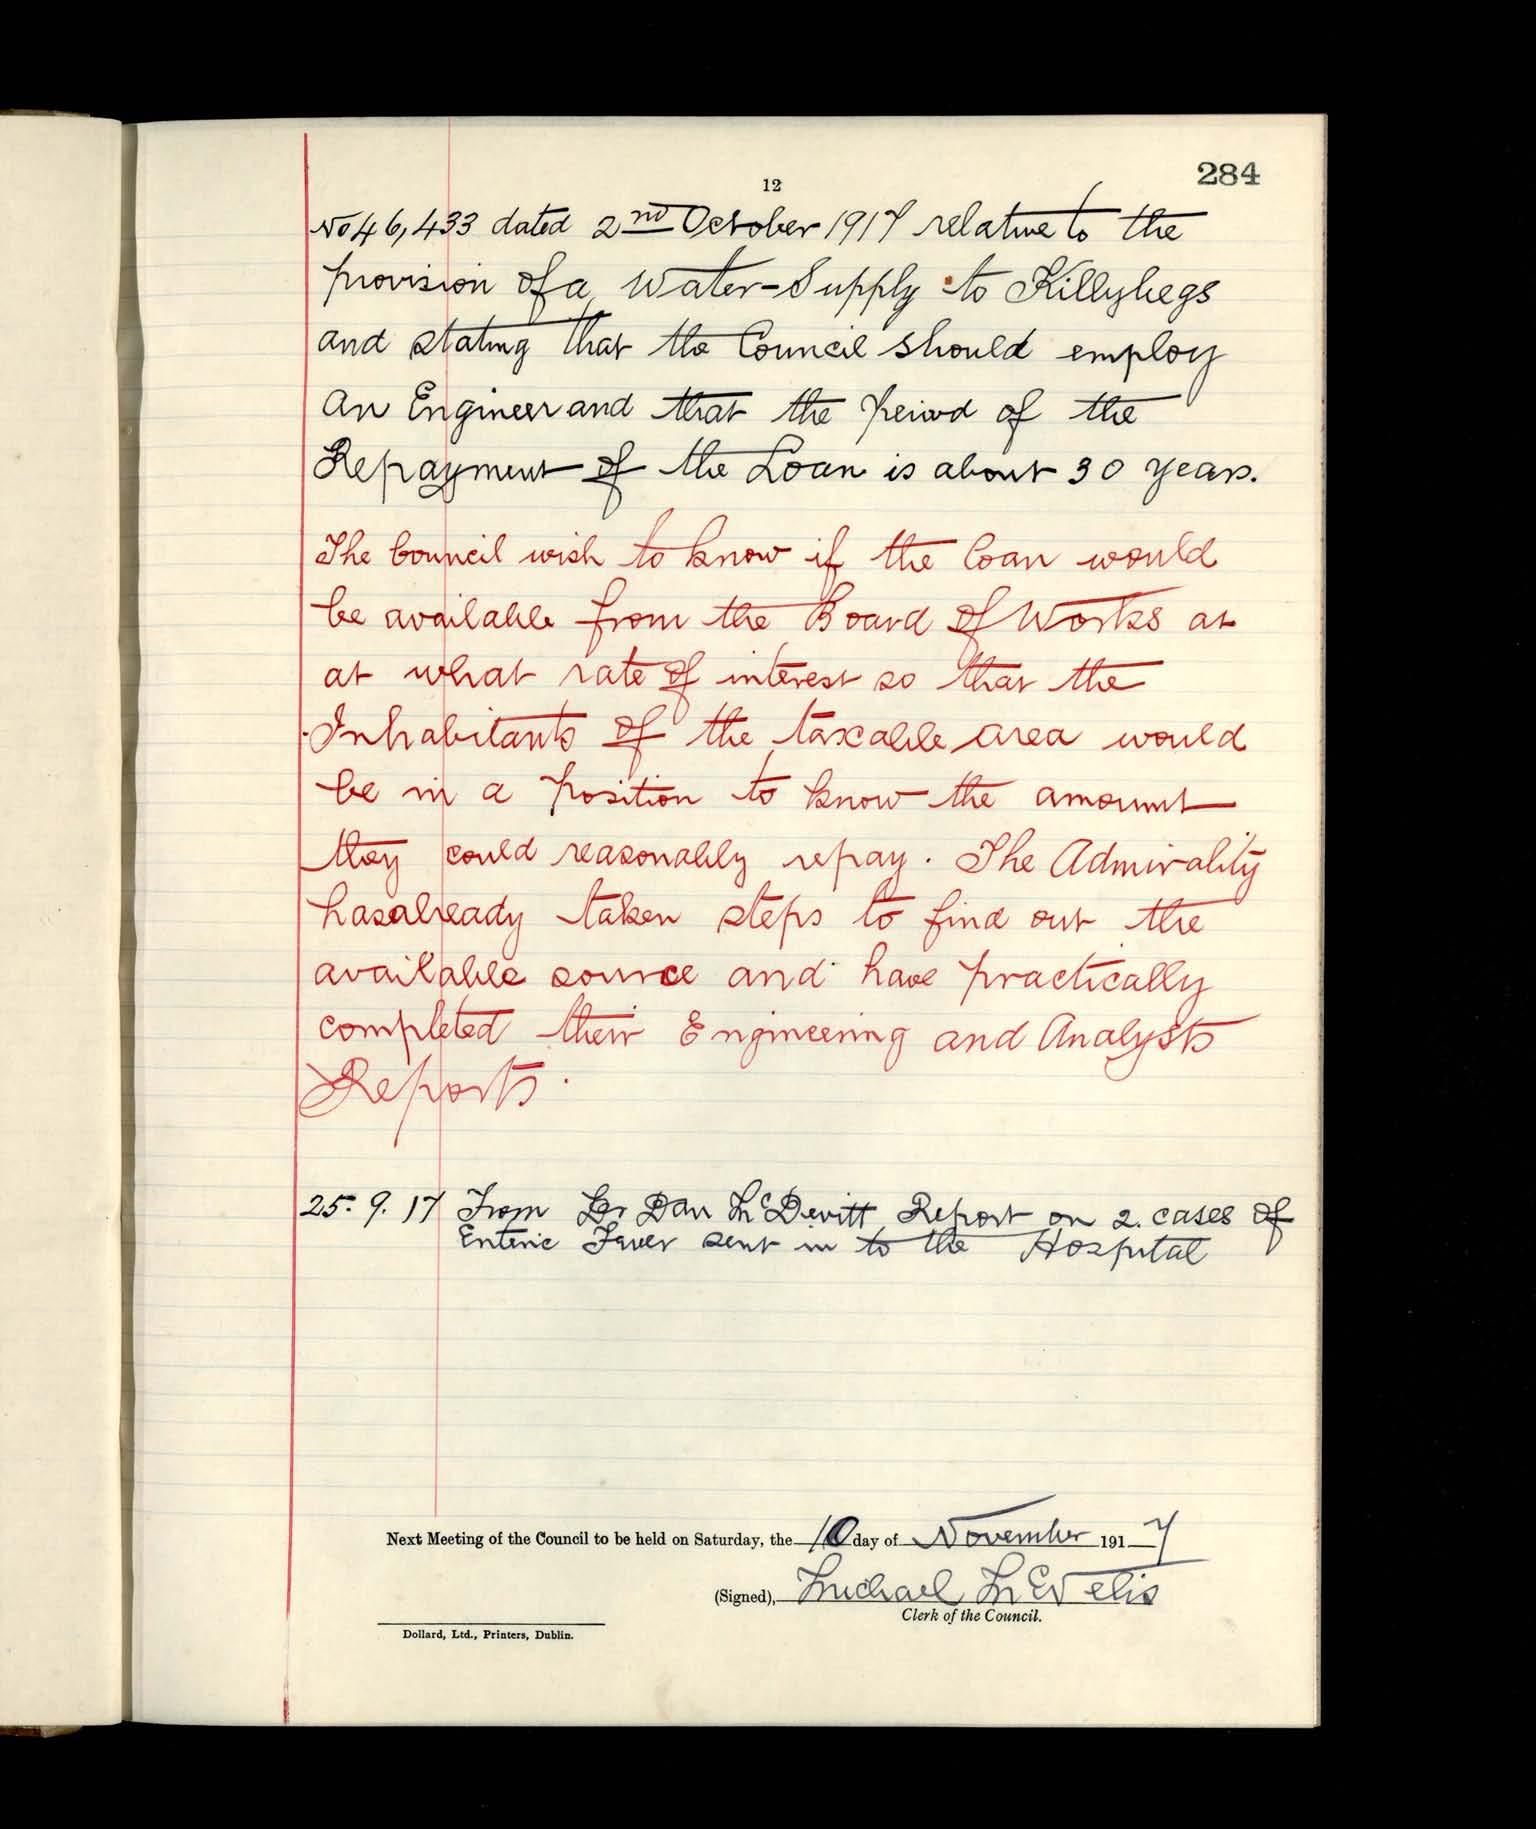 284
12
No 46,433 dated 2nd October 1917 relative to the
provision of a Water-Supply to Killybegs
and stating that the Council should employ
an Engineer and that the period of the
Repayment of the Loan is about 30 years.
The Council wish to know if the loan would
be available from the Board of Works at
at what rate of interest so that the
Inhabitants of the taxable area would
be in a position to know the amount
they could reasonably repay. The Admirality
has already taken steps to find out the
available source and have practically
completed their Engineering and Analysts
Reports.
25. 9. 17 From Dr Dan McDevitt Report on 2. cases of
Enteric Fever sent in to the Hospital
Next Meeting of the Council to be held on Saturday, the 10 day of November 1917
(Signed), Michael McEvelis
Clerk of the Council.
Dollard, Ltd., Printers, Dublin.